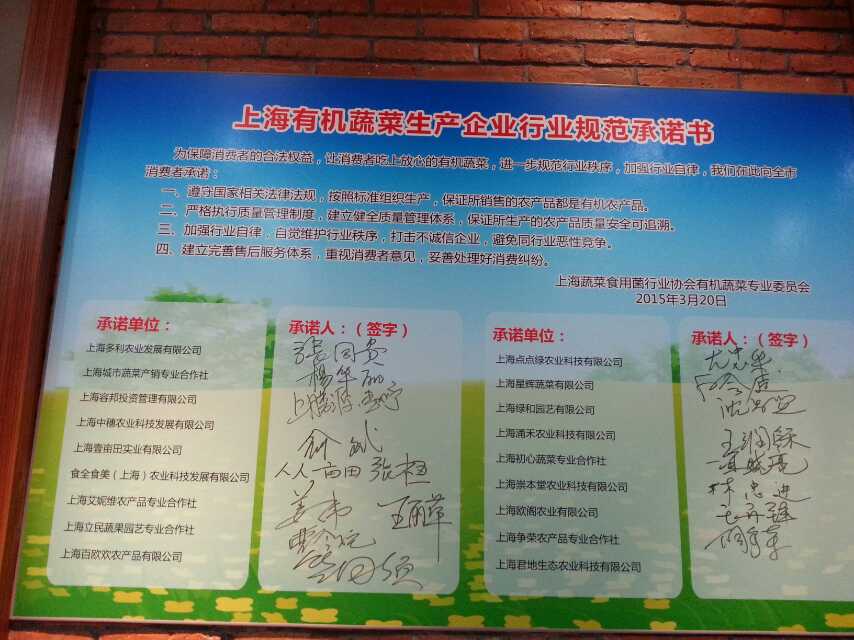 上海有机蔬菜生产企业行业规范承诺书
为保障消费者的合法权益，让消费者吃上放心的有机蔬菜，进一步规范行业秩序，加强行业自律，我们在此向全市
消费者承诺：
一、遵守国家相关法律法规，按照标准组织生产，保证所销售的农产品都是有机农产品。
二、严格执行质量管理制度，建立健全质量管理体系，保证所生产的农产品质量安全可追溯。
三、加强行业自律，自觉维护行业秩序，打击不诚信企业，避免同行业恶性竞争。
四、建立完善售后服务体系，重视消费者意见，妥善处理好消费纠纷。
上海蔬菜食用菌行业协会有机蔬菜专业委员会
2015年3月20日
承诺单位：
上海多利农业发展有限公司
上海城市蔬菜产销专业合作社
上海容邦投资管理有限公司
上海中穗农业科技发展有限公司
上海壹亩田实业有限公司
食全食美（上海）农业科技发展有限公司
上海艾妮维农产品专业合作社
上海立民蔬果园艺专业合作社
上海百欧欢农产品有限公司
承诺人：（签字）
杨华丽
人人亩田
承诺单位：
上海点点绿农业科技有限公司
上海星辉蔬菜有限公司
上海绿和园艺有限公司
上海涌禾农业科技有限公司
上海初心蔬菜专业合作社
上海崇本堂农业科技有限公司
上海欧阁农业有限公司
上海争荣农产品专业合作社
上海君地生态农业科技有限公司
承诺人：（签字）
林忠进